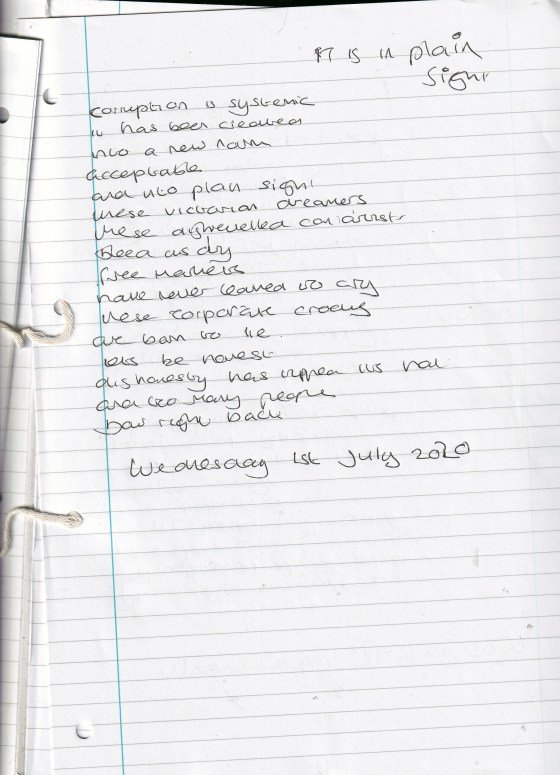 It is in plain
sight
corruption is systemic
it has been created
into a new norm
acceptable
and into plain sight
these victorian dreamers
these
bleed us dry
free markets
have never learned to cry
these corporate
are born to lie
lets be honest
dishonesty has tipped its hat
and too many people
bow right back
Wednesday 1st July 2020